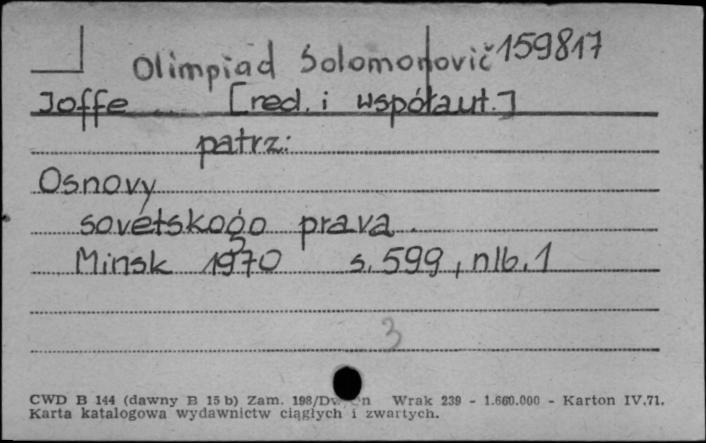 Olimpiad Solomonovič 159817
Joffe [red. i współaut.]
patrz:
Osnovy
sovetskogo prava.
Minsk 1970 s. 599, nlb. 1
3
CWD B 144 (dawny B 15 b) Zam. 198/ Wrak 239 - 1.660.000 - Karton IV.71.
Karta katalogowa wydawnictw ciągłych i zwartych.